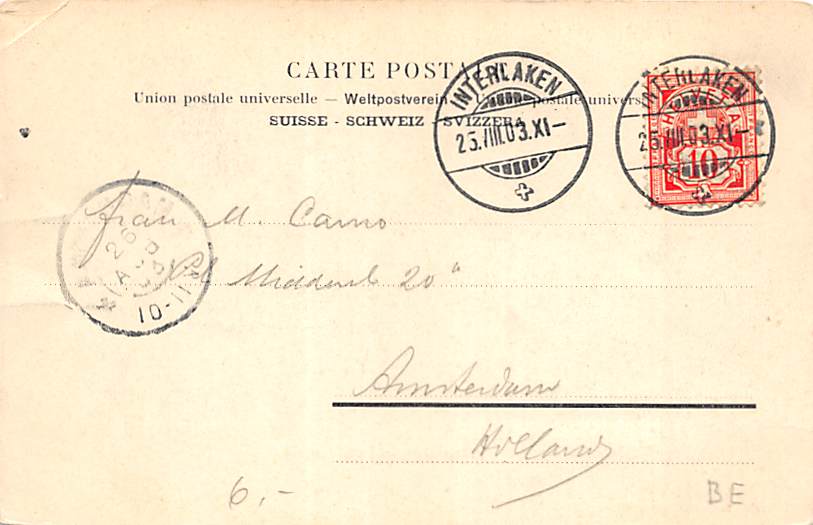 CARTE POSTA
Union postale universelle — Weltpostverein postale univers
SUISSE - SCHWEIZ - SVIZZERA
INTERLAKEN
25.VIII.03.XI-
INTERLAKEN
25.VIII.03.XI-
HELVETIA
10
26
10-11
M. Camo
20
Amsterdam
Holland
6.-
BE